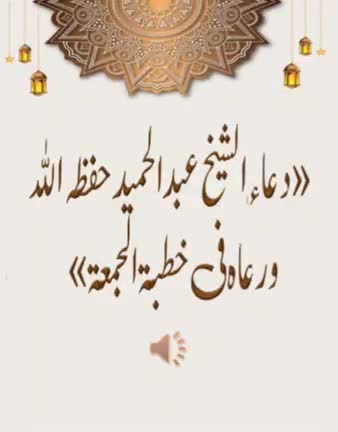 «دعاء الشيخ عبدالحميد حفظه الله
ورعاه في خطبة الجمعة»